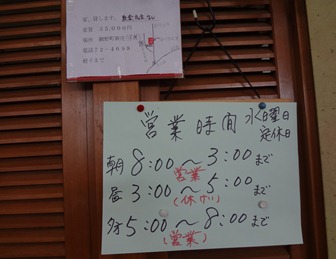 家、貸します。
家賃 35,000円
電話72-4698
営業時間 水曜日
定休日
朝 8:00〜3:00まで
営業
昼 3:00〜5:00まで
(休けい)
夕 5:00〜8:00まで
(営業)